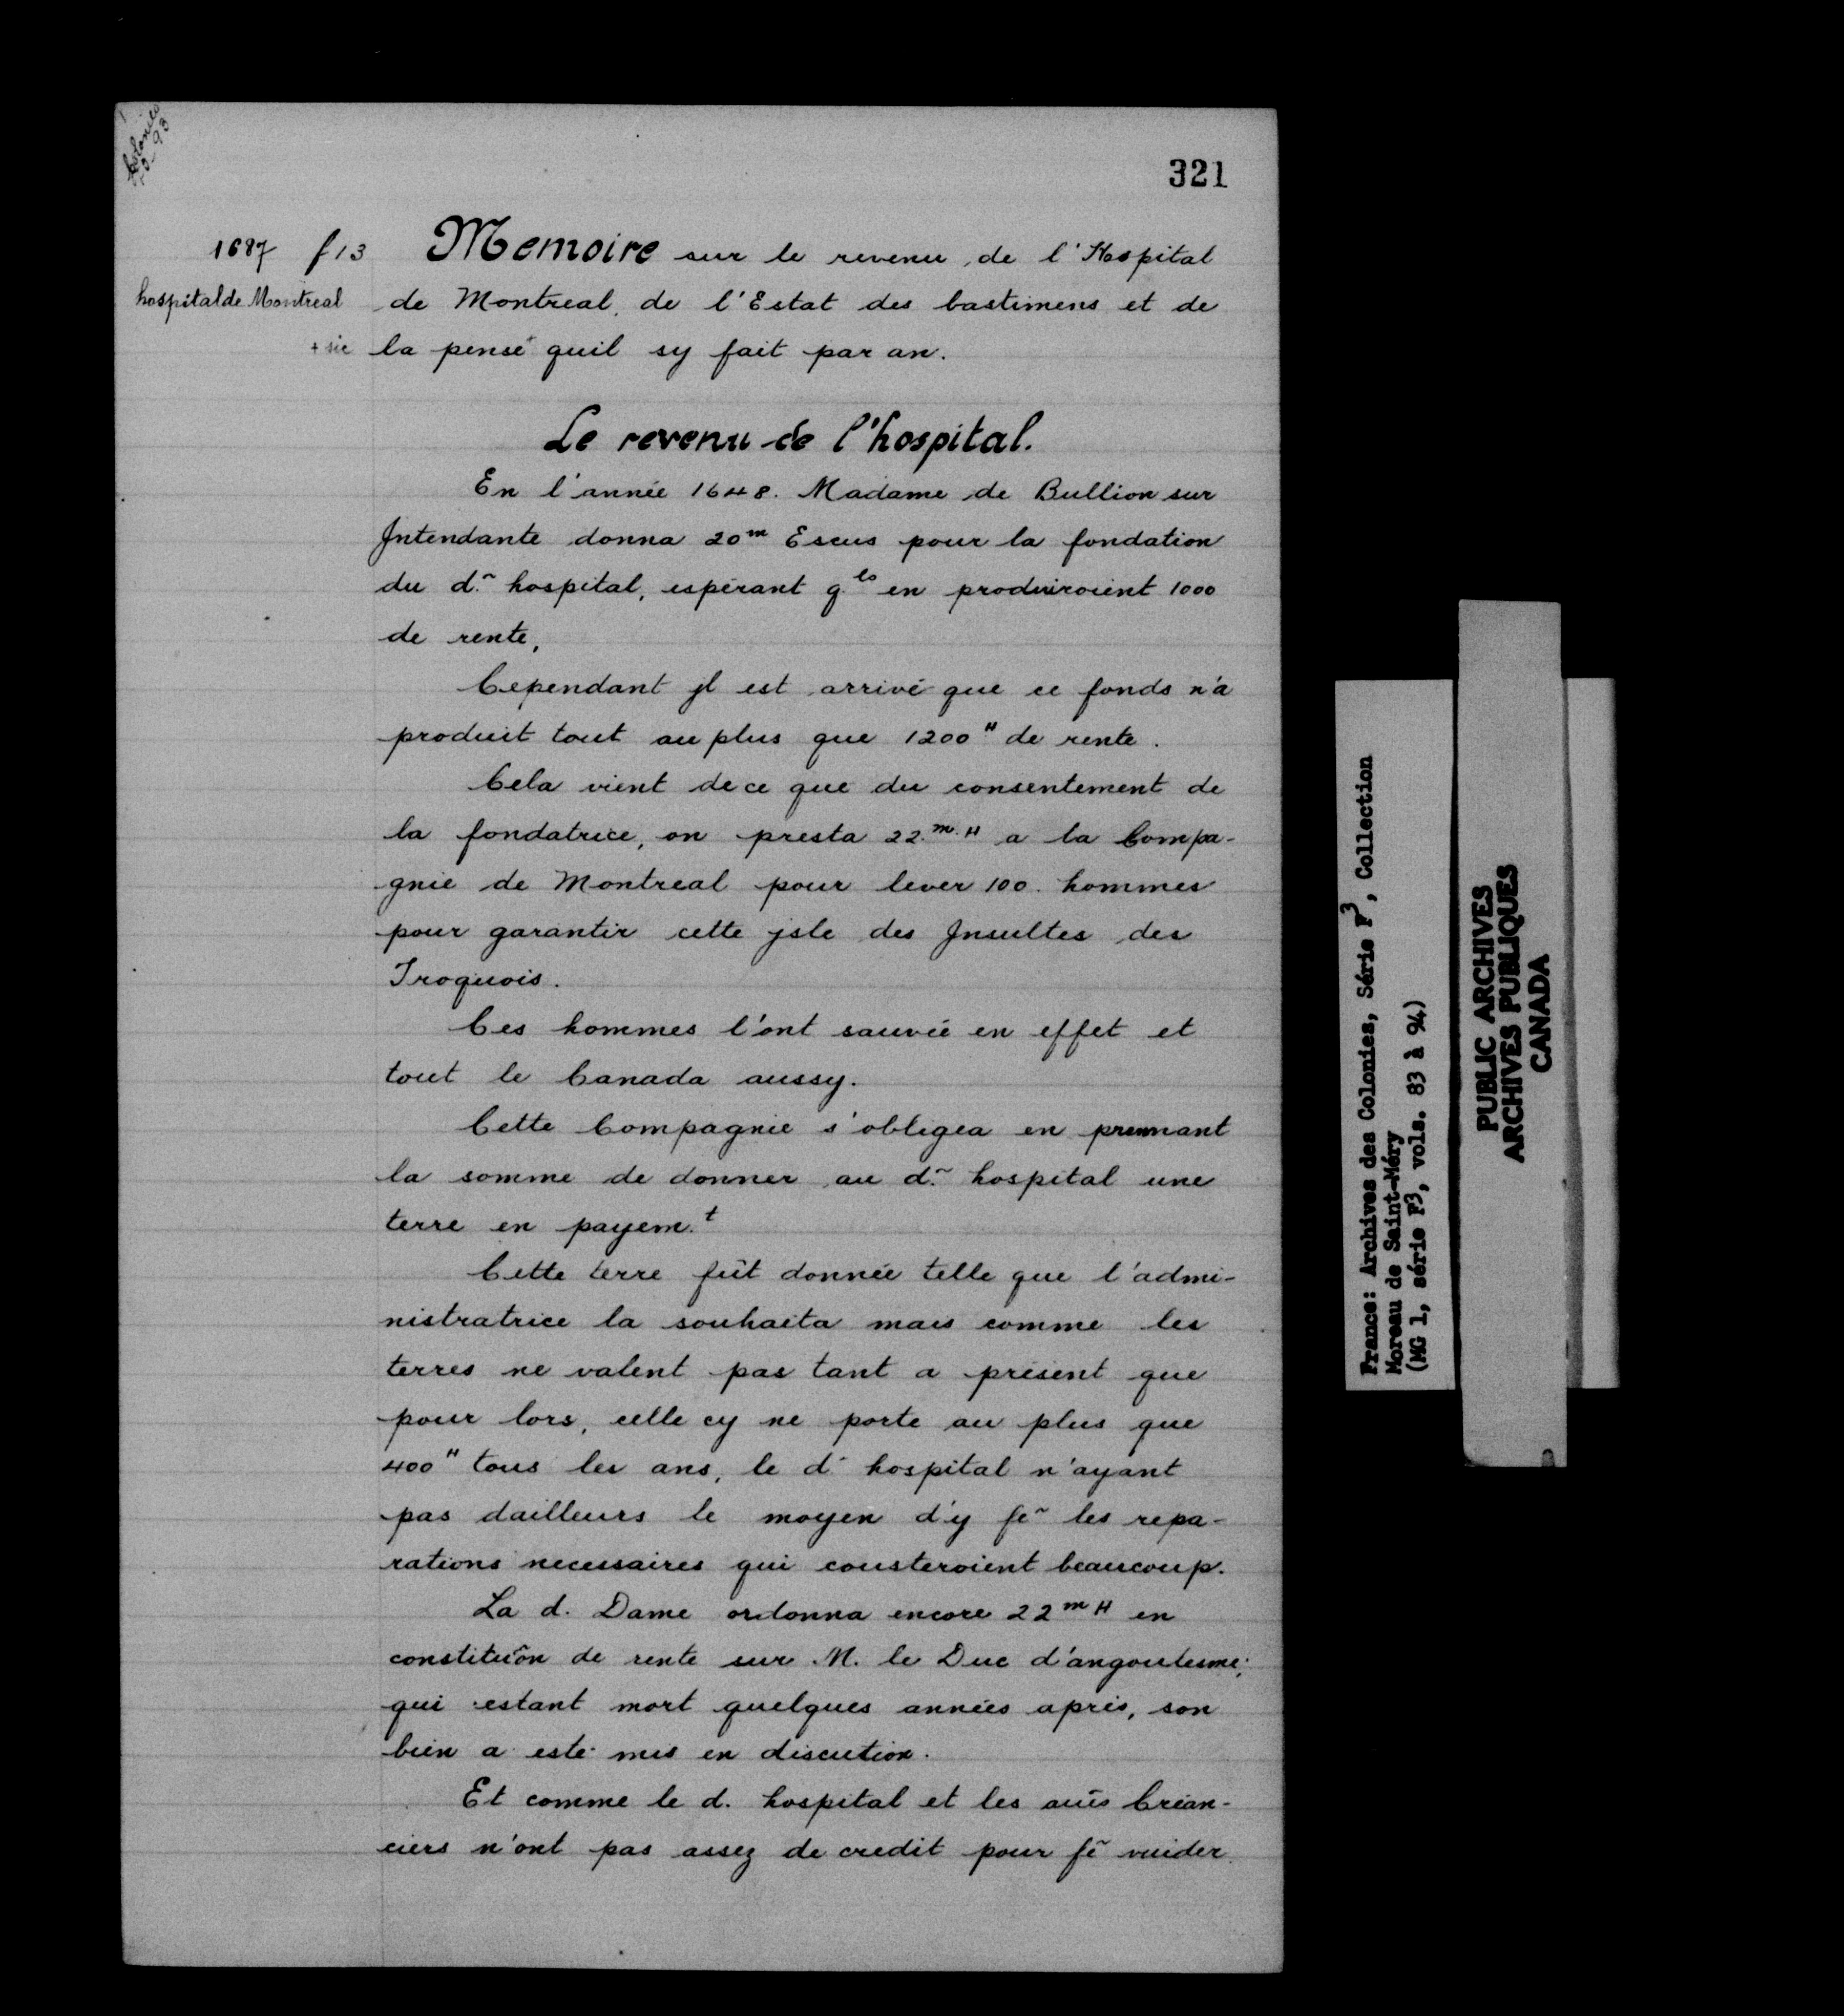 Colonies
93
321
1687 f 13
hospital de Montreal
+ sic
Memoire sur le revenu de l'Hospital
de Montreal, de l'Estat des bastimens et de
la pensé+ quil sy fait par an.
Le revenu de l'hospital.
En l'année 1648. Madame de Bullion sur
Jntendante donna 20m Escus pour la fondation
du d.~ hospital, espérant q.ls en produiroient 1000
de rente,
Cependant jl est arrivé que ce fonds n'a
produit tout au plus que 1200# de rente.
Cela vient de ce que du consentement de
la fondatrice, on presta 22.m.# a la Compa-
gnie de Montreal pour lever 100. hommes
pour garantir cette jsle des Jnsultes des
Iroquois.
Ces hommes l'ont sauvée en effet et
tout le Canada aussy.
Cette Compagnie s'obligea en prennant
la somme de donner au d.~ hospital une
terre en payem.t
Cette terre fût donnée telle que l'admi-
nistratrice la souhaita mais comme les
terres ne valent pas tant a présent que
pour lors, celle cy ne porte au plus que
400# tous les ans, le d~ hospital n'ayant
pas dailleurs le moyen d'y fe~ les repa-
rations necessaires qui cousteroient beaucoup.
La d. Dame ordonna encore 22m# en
constituôn de rente sur M. le Duc d'angoulesme;
qui estant mort quelques années après, son
bien a esté mis en discution.
Et comme le d. hospital et les aûs Créan-
ciers n'ont pas assez de credit pour fe~ vuider
France: Archives des Colonies, Série F3, Collection
Moreau de Saint-Méry
(MG 1, série F3, vols. 83 à 94)
PUBLIC ARCHIVES
ARCHIVES PUBLIQUES
CANADA